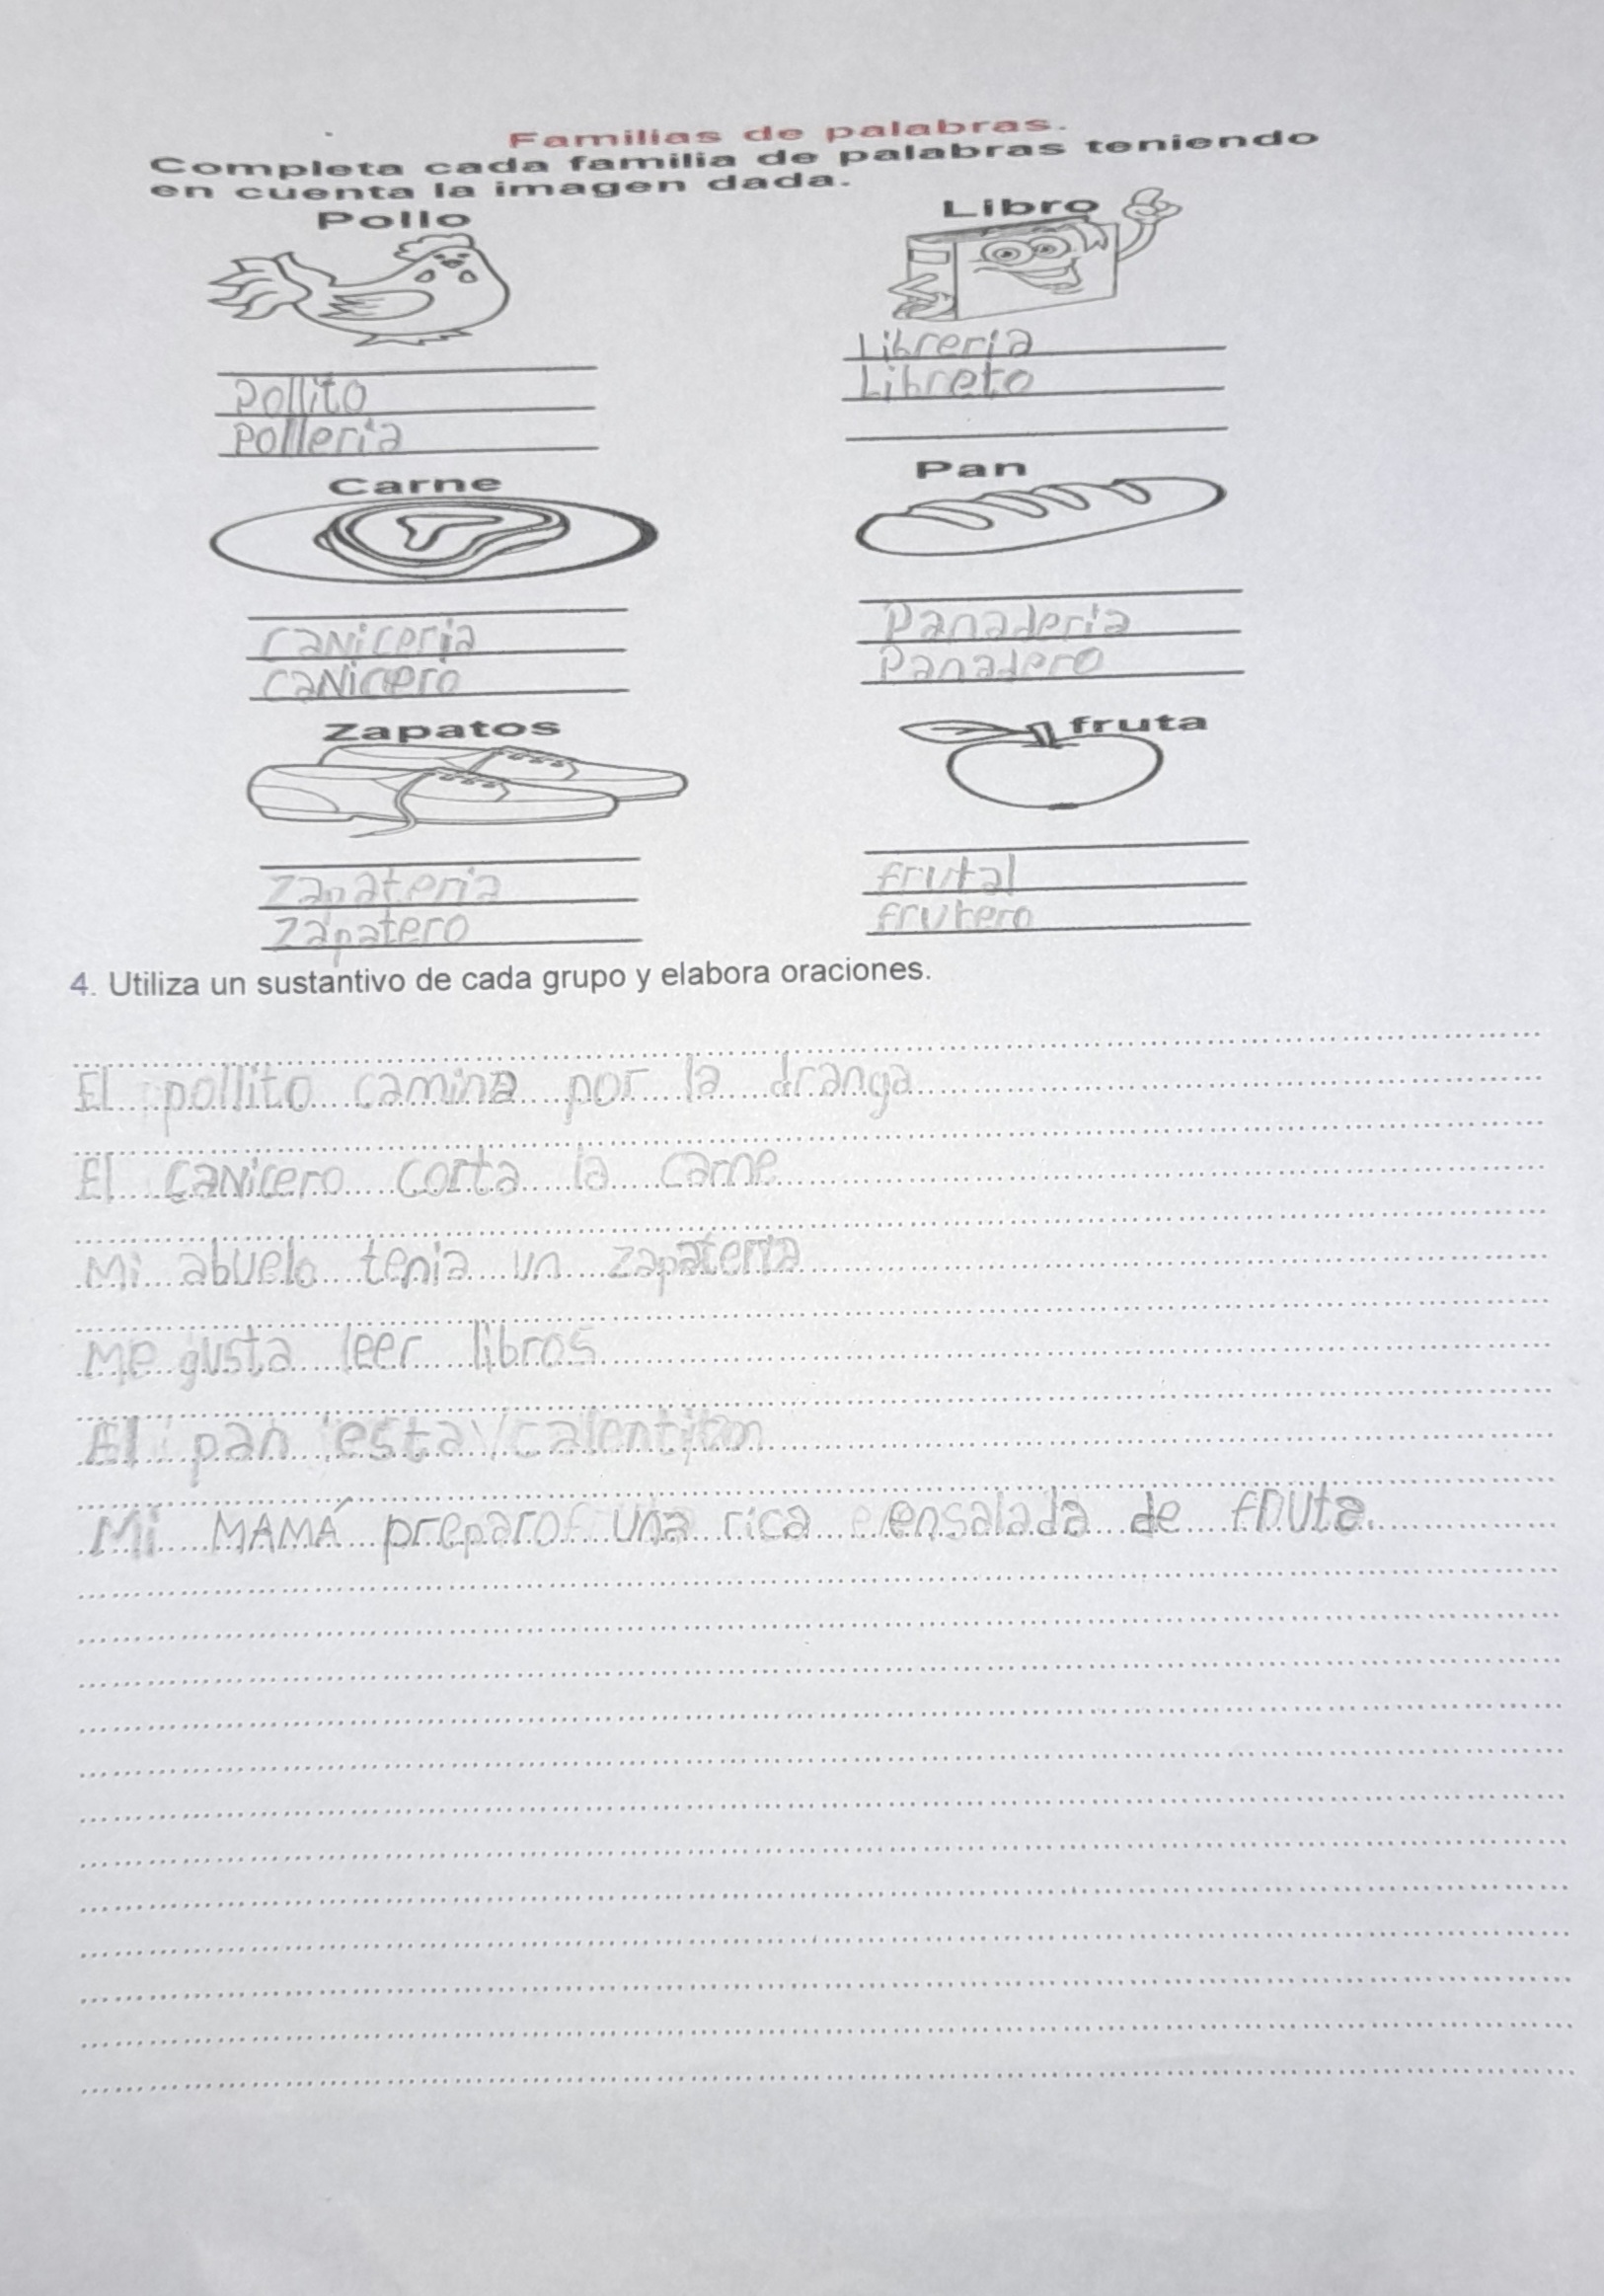 Familias de palabras.
Completa cada familia de palabras teniendo
en cuenta la imagen dada.
Pollo
Pollito
Pollería
Libro
Librería
Libreto
Carne
Canicería
canicero
Pan
Panadería
Panadero
Zapatos
Zapatería
Zapatero
fruta
frutal
frutero
4. Utiliza un sustantivo de cada grupo y elabora oraciones.
El pollito camina por la dranga
El canicero corta la carne
Mi abuelo tenia un zapatería
Me gusta leer libros
El pan esta
Mi MAMÁ preparo una rica ensalada de fruta.